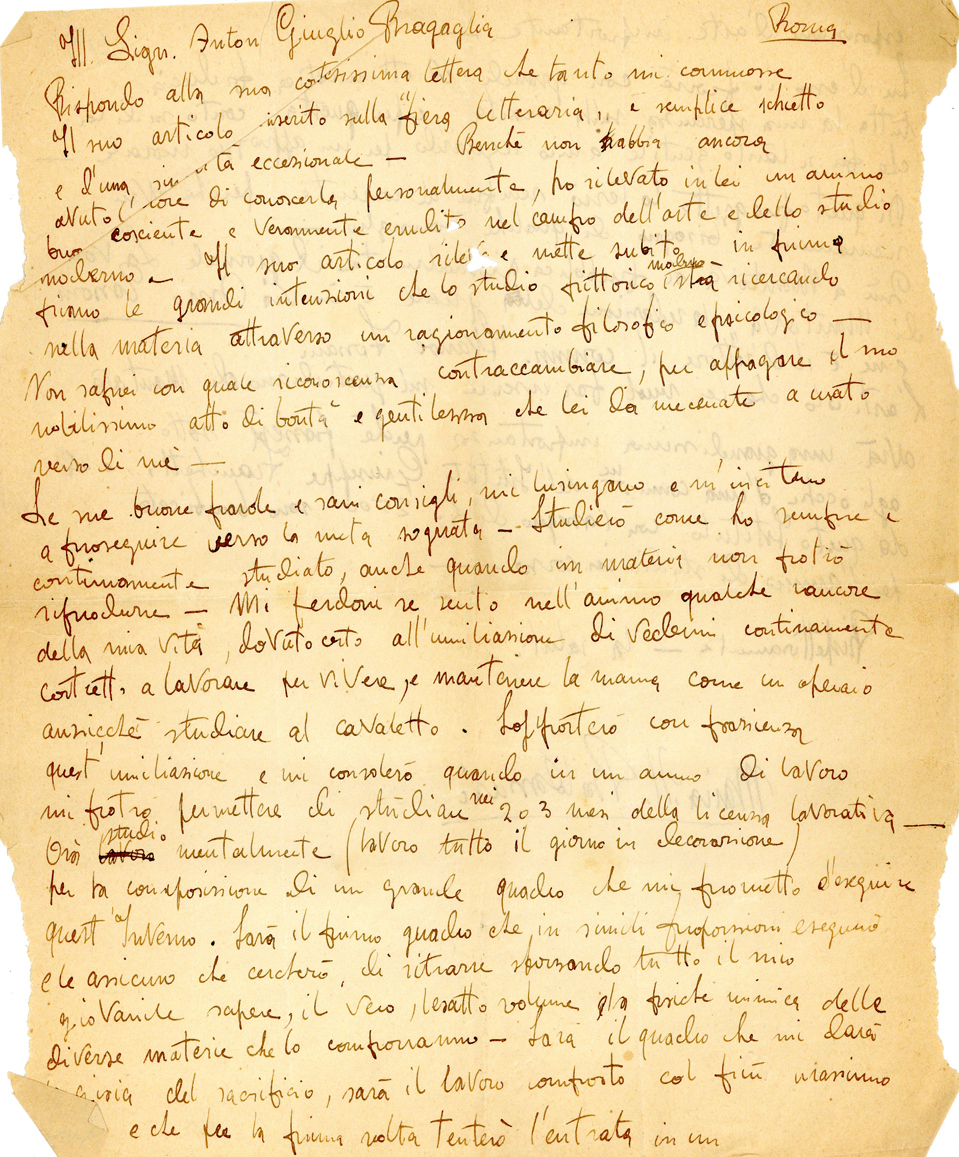 Ill. Sign. Anton Giuglio Bragaglia Roma
Rispondo alla sua cortesissima lettera che tanto mi commosse
Il suo articolo inserito sulla "fiera letteraria", è semplice schietto
e d'una sin ità eccezionale — Benchè non abbia ancora
avuto l' nore di conoscerla personalmente, ho rilevato in lei un animo
buo cosciente e veramente erudito nel campo dell'arte e dello studio
moderno — Il suo articolo rileva e mette subito in primo
piano le grandi intenzioni che lo studio pittorico moderno sta ricercando
nella materia attraverso un ragionamento filosofico e psicologico —
Non saprei con quale riconoscenza contraccambiare, per appagare il suo
nobilissimo atto di bontà e gentilezza che lei da mecenate a usato
verso di me —
Le sue buone parole e sani consigli, mi lusingano e m'incitano
a proseguire verso la meta sognata — Studierò come ho sempre e
continuamente studiato, anche quando in materia non potrò
riprodurre — Mi perdoni se sento nell'animo qualche rancore
della mia vita, dovuto certo all'umiliazione di vedermi continuamente
costretto a lavorare per vivere, e mantenere la mamma come un operaio
anzicchè studiare al cavaletto. Sopporterò con pazienza
quest'umiliazione e mi consolerò quando in un anno di lavoro
mi potrò permettere di studiare nei 2 o 3 mesi della licenza lavorativa —
Ora studio mentalmente (lavoro tutto il giorno in decorazione)
per la composizione di un grande quadro che mi prometto d'eseguire
quest'Inverno. Sarà il primo quadro che in simili proporzioni eseguirò
e le assicuro che cercherò, di ritrarre sforzando tutto il mio
giovanile sapere, il vero, l'esatto volume la psiche unica delle
diverse materie che lo comporranno — Sarà il quadro che mi darà
la gioia del sacrificio, sarà il lavoro composto col più massimo
e che per la prima volta tenterò l'entrata in un